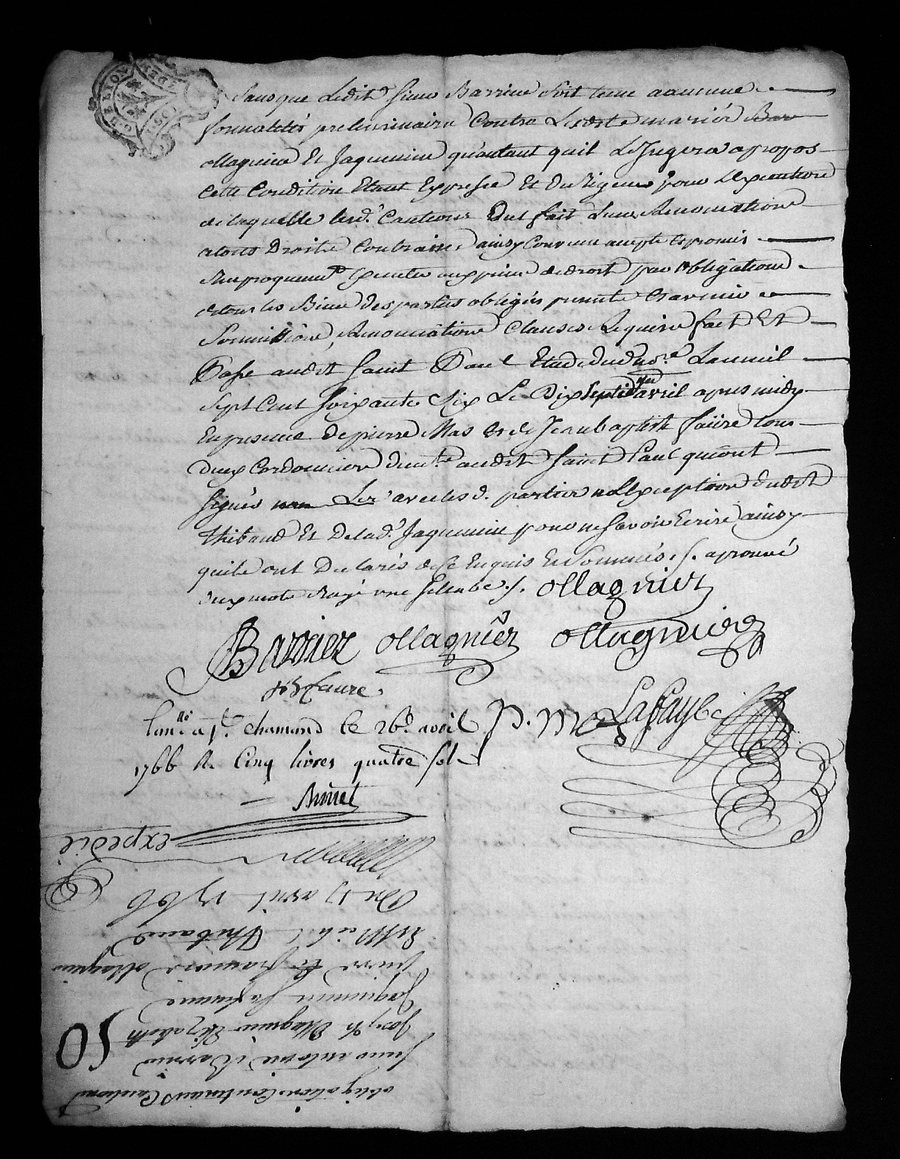 Sans que ledit Sieur Barrier soit tenu a aucune
formalités preliminaire Contre Lesdits mariés
ollagnier Et Jaquemine qu'autant quil Le Jugera apropos
Cette Condition Etant Expresse Et de Rigueur pour l'Execution
de laquelle lesd. Cautions ont fait Renonciation
a tous Droits Contraires ainsy Convenu accepté et promis
Reciproquement peine de droit par obligation
de tous les Biens des parties obligés
Soumissions, Renonciations Clauses Requises fait Et
Passé audit Saint Paul Etude du no.re L'an mil
Sept Cent Soixante Six Le Dix Sept avril apres midy
En presence de pierre Mas Et de Jean baptiste faure tous
deux Cordonniers audit Saint Paul qui ont
Signés avec les d. parties a l'Exception dudit
Thibaud Et de lad. Jaquemine pour ne savoir Ecrire ainsy
quils ont Declarés de ce Enquis Et Sommés ./. aprouvé
deux mots Rayé une Silabe ./. ollagnier
Barrier ollagnier ollagnier
JB faure P. mas Lafaye
Conllé a St. chamond le 26e avril
1766 R. Cinq livres quatre sols
expedié
Du 17 avril 1766
Et Michel Thibaud
françois ollagnier
Jaquemine Sa femme
Joseph Ollagnier Elizabeth
Sieur antoine Barrier
obligation Contenant Caution
50